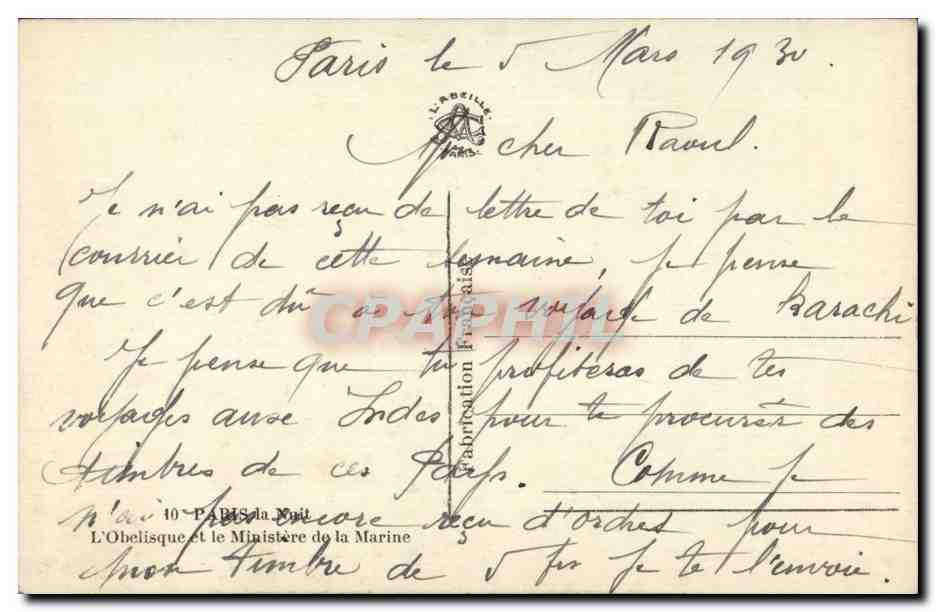 Paris le 5 Mars 1930.
L'ABEILLE
PARIS
Mon cher Raoul.
Je n'ai pas reçu de lettre de toi par le
courrier de cette semaine, je pense
que c'est dû à ton voyage de Karachi
CPAPHIL
Je pense que tu profiteras de tes
voyages aux Indes pour te procurer des
timbres de ces Pays. Comme je
n'ai pas encore reçu d'ordres pour
mon timbre de 5 frs je te l'envoie.
Fabrication Française
10 PARIS la Nuit
L'Obelisque et le Ministère de la Marine